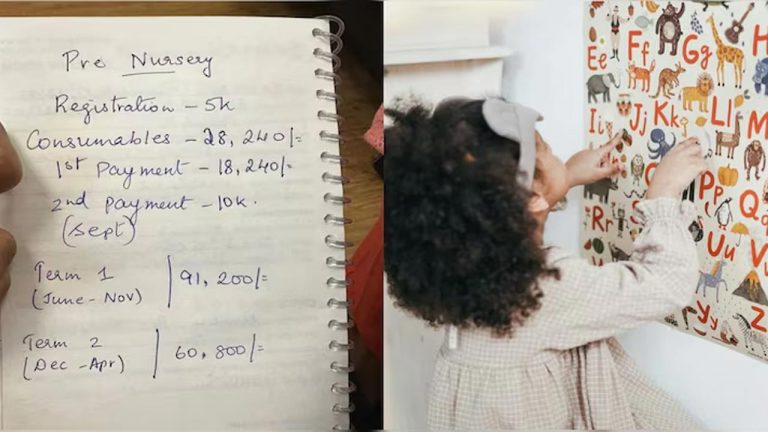 Pre Nursery
Registration - 5k
Consumables - 28,240/-
1st Payment - 18,240/-
2nd payment - 10k.
(Sept)
Term 1 | 91,200/-
(June - Nov)
Term 2 | 60,800/-
(Dec - Apr)
Ee Ff Gg H
Ii Jj Kk Ll M
Pp Q
R S Uu V
Yy Z